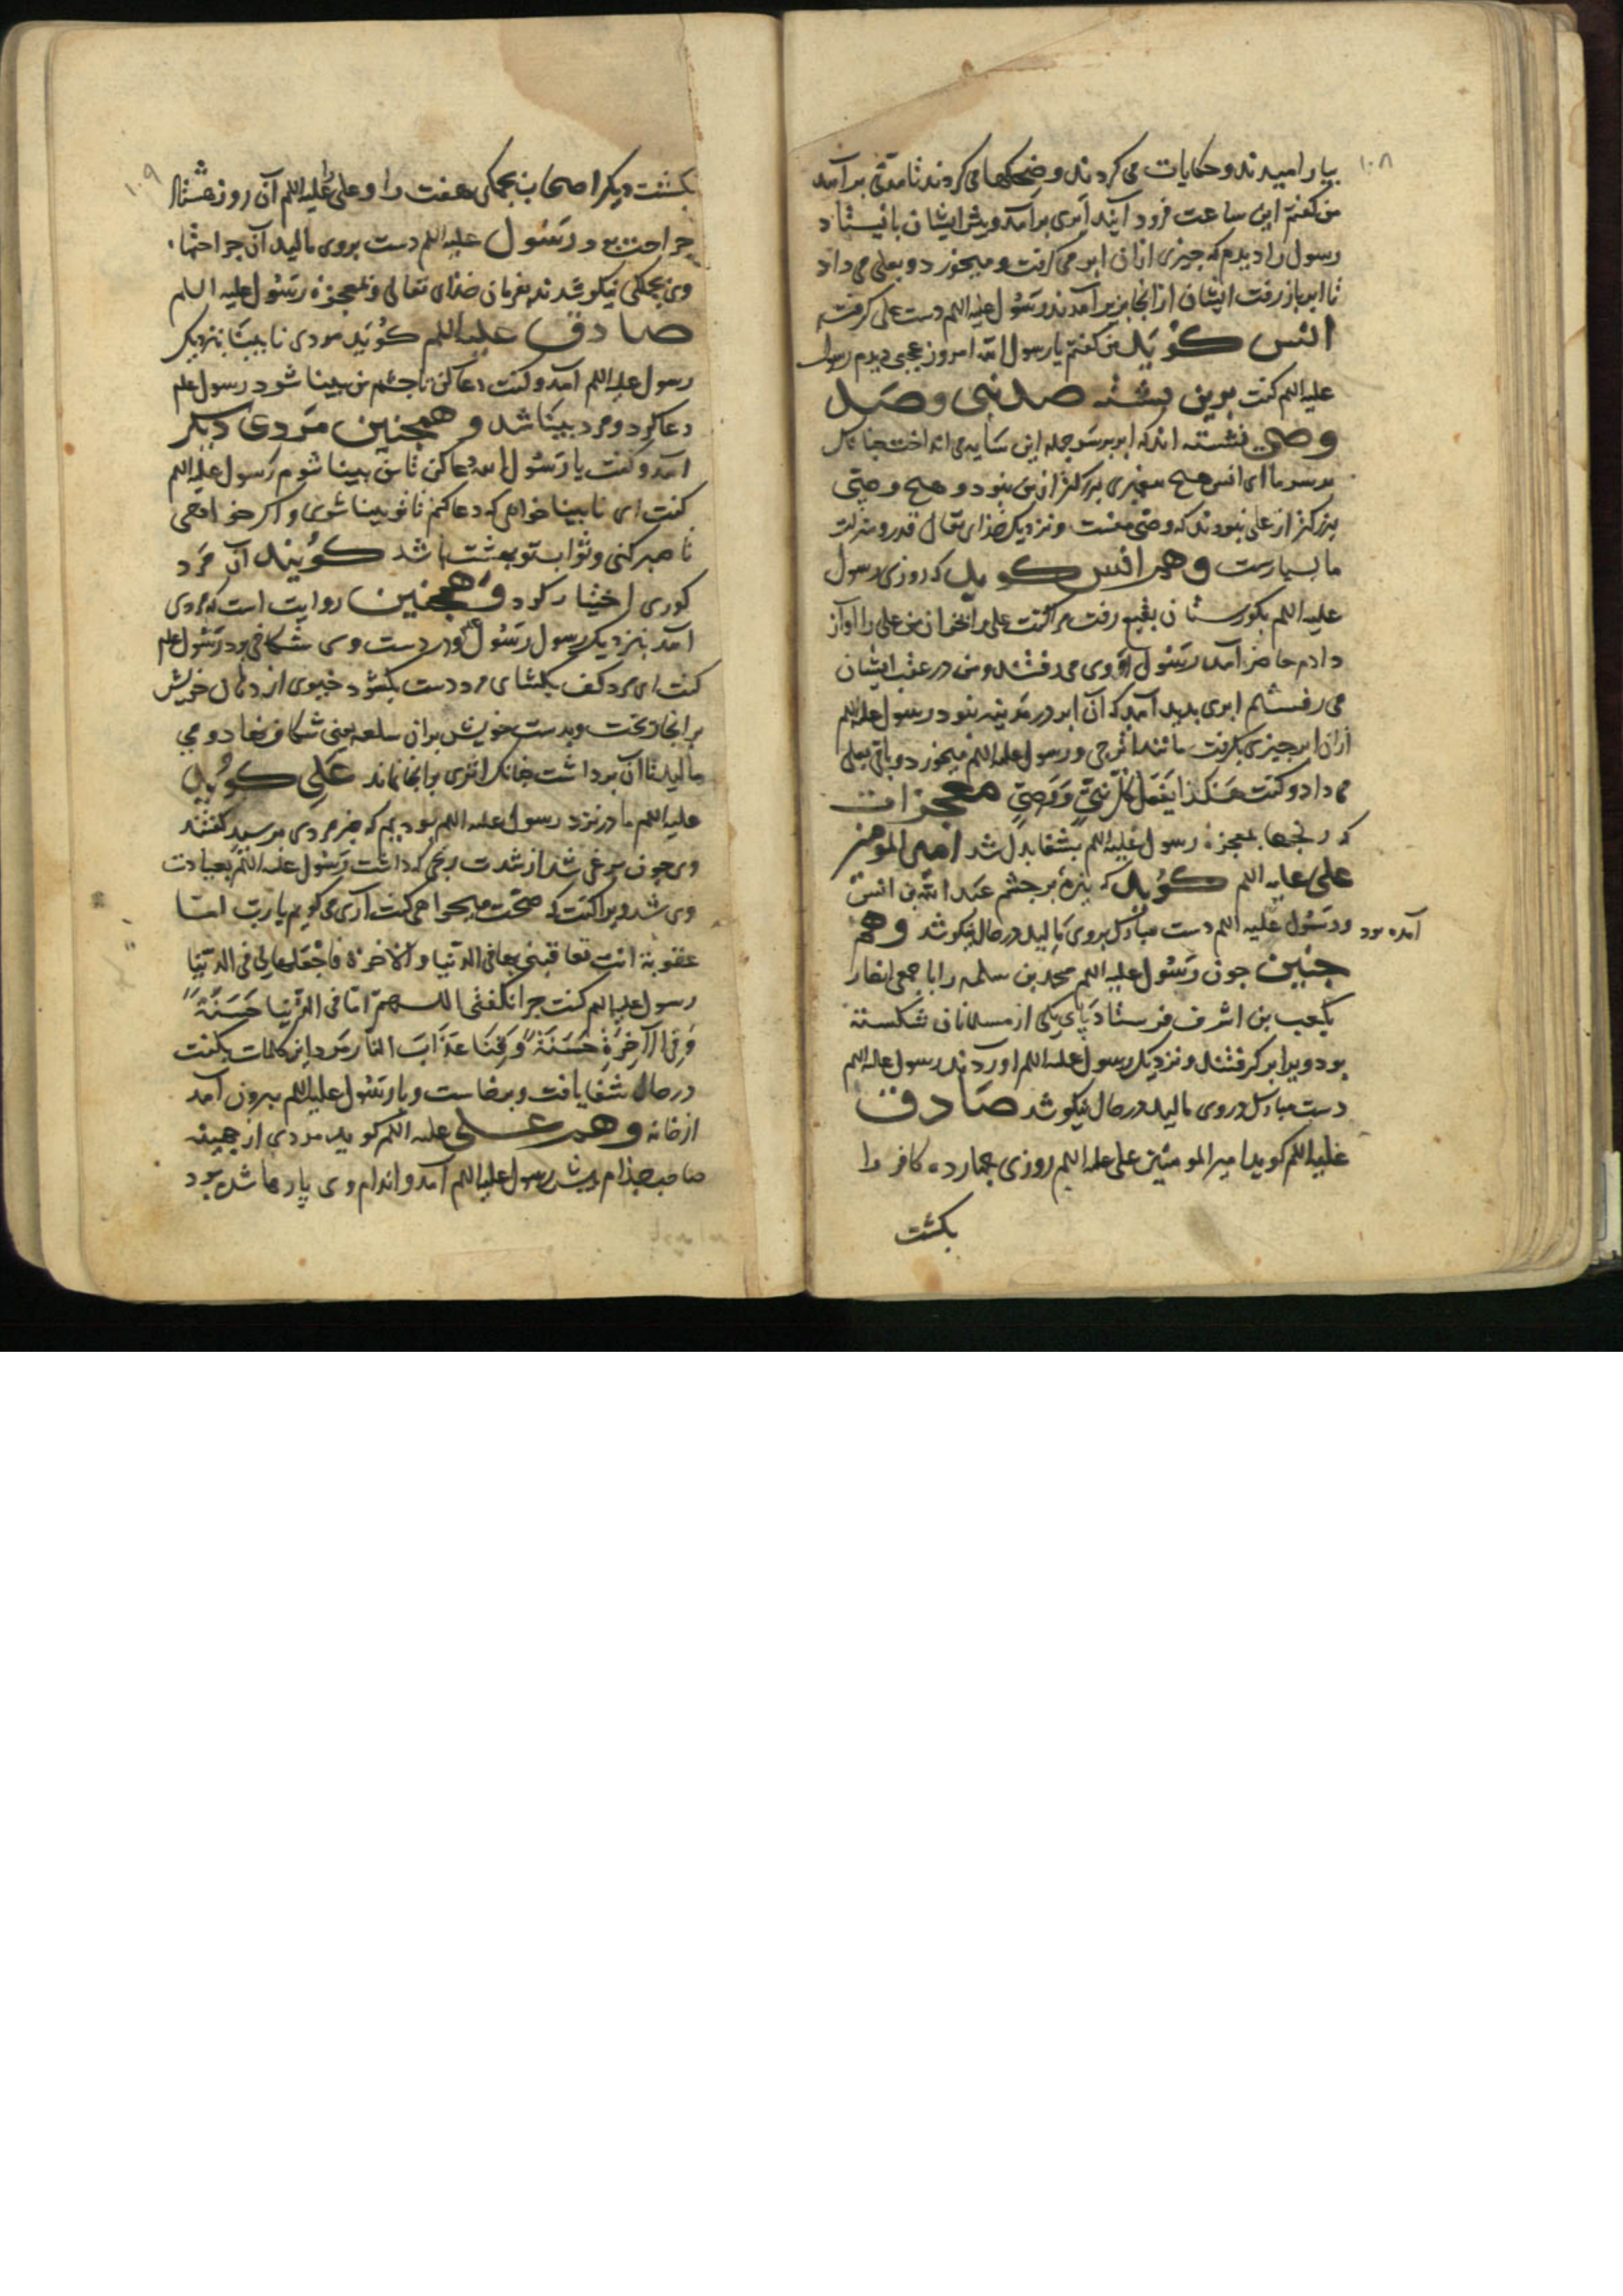 ۱۰۸
بیارامیدند و حکایات می کردند و ضحکها می کردند تا مدتی برآمد
من کفتم این ساعت فرود آیند ابری برآمد و پیش ایشان بایستاد
رسول را دیدم که چیزی ازان ابر می کرفت و میخورد و بعلی می داد
تا ابر باز رفت ایشان ازانجا بزیر آمدند و رسول علیه السلم دست علی کرفته
انس کوید من کفتم یا رسول الله امروز عجبی دیدم رسول
علیه السلم کفت برین پشته صد نبی و صد
وصی نشسته اند که ابر بر سر جمله این سایه می انداخت چنانک
بر سر ما ای انس هیچ پیغمبری بزرکتر از من نبود و هیچ وصیی
بزرکتر از علی نبودند که وصی منست و نزدیک خدای تعالی قدر و منزلت
ما بسیارست و هم انس کوید که روزی رسول
علیه السلم بکورستان بقیع رفت مرا کفت علی را بخوان من علی را آواز
دادم حاضر آمد رسول و وی می رفتند و من در عقب ایشان
می رفتم ابری بدید آمد که آن ابر در مدینه نبود رسول علیه السلم
ازان ابر چیزی بکرفت مانند اترجی و رسول علیه السلم میخورد و باقی بعلی
می داد و کفت هکذا یفعل کل نبی و وصی معجزات
که رنجها بمعجزه رسول علیه السلم بشفا بدل شد امیر المومنین
علی علیه السلم کوید که نیزه بر چشم عبد الله بن انیس
آمده بود و رسول علیه السلم دست مبارک بروی مالید در حال نیکو شد و هم
چنین چون رسول علیه السلم محمد بن سلمه را با جمعی انصار
بکعب بن اشرف فرستاد پای یکی از مسلمانان شکسته
بود ویرا بر کرفتند و نزدیک رسول علیه السلم آوردند رسول علیه السلم
دست مبارک در وی مالید در حال نیکو شد صادق
علیه السلم کوید امیر المومنین علی علیه السلم روزی چهارده کافر را
بکشت
۱۰۹
بکشت دیکر اصحاب بجملکی هفت را و علی را علیه السلم آن روز هشتاد
جراحت بود رسول علیه السلم دست بروی مالید آن جراحتهاء
وی بجملکی نیکو شدند بفرمان خدای تعالی و بمعجزه رسول علیه السلم
صادق علیه السلم کوید مردی نابینا بنزدیک
رسول علیه السلم آمد و کفت دعا کن تا چشم من بینا شود رسول علیه السلم
دعا کرد و مرد بینا شد و همچنین مردی دیکر
آمد و کفت یا رسول الله دعا کن تا من بینا شوم رسول علیه السلم
کفت ای نابینا خواهی که دعا کنم تا تو بینا شوی و اکر خواهی
تا صبر کنی و ثواب تو بهشت باشد کویند آن مرد
کوری اختیار کرد و همچنین روایت است که مردی
آمد بنزدیک رسول و در دست وی شکافی بود رسول علیه السلم
کفت ای مرد کف بکشای مرد دست بکشود خیوی از دهان خویش
برانجا ریخت و بدست خویش بران سلعه یعنی شکاف نهاد و می
مالید تا آن برداشت چنانک اثری برانجا نماند علی کوید
علیه السلم ما در نزد رسول علیه السلم بودیم که خبر مردی پرسید کفتند
وی چون مرغی شد از شدت رنجی که داشت رسول علیه السلم بعیادت
وی شد ویرا کفت که صحت میخواهی کفت آری می کویم یا رب ایما
عقوبة انت تعاقبنی بها فی الدنیا والاخرة فاجعلها لی فی الدنیا
رسول علیه السلم کفت چرا نکفتی اللهم اتنا فی الدنیا حسنة
وفی الآخرة حسنة وقنا عذاب النار مرد این کلمات بکفت
در حال شفا یافت و برخاست و با رسول علیه السلم بیرون آمد
از خانه و هم علی علیه السلم کوید مردی از جهینه
صاحب جذام پیش رسول علیه السلم آمد و اندام وی پارها شده بود